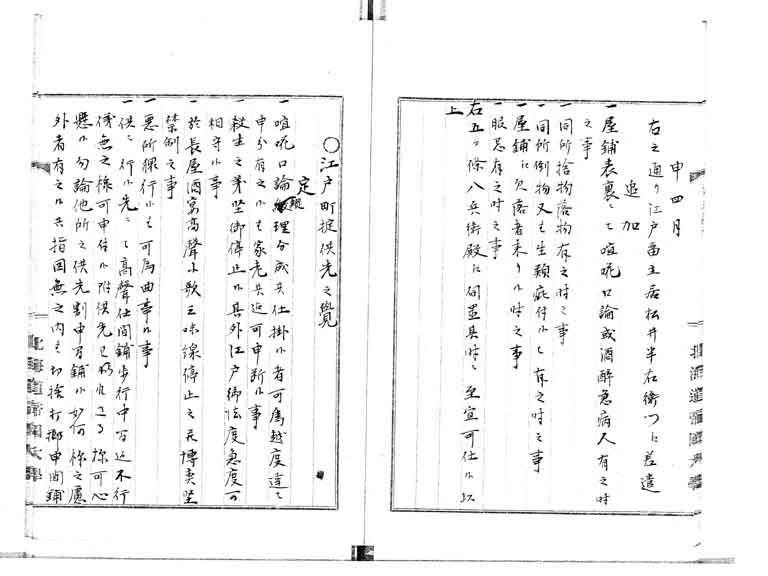 申四月
右之通り江戸留主居松井半右衛門に差遣
追加
一屋鋪表裏ニて喧呢口論或酒酔急病人有之時
之事
一同所捨物落物有之時之事
一同所倒物又ハ生類疵付候て有之時之事
一屋鋪に欠落者来り候時之事
一服忌有之時之事
右五ヶ條八兵衛殿に伺置其時ニ至宜可仕候以
上
〇江戸町掟供先之覺
定
一喧呢口論理分成共仕掛候者可為越度違ニ
申分有之候ハ家老共迄可申断候事
一殺生之者堅御停止候其外江戸御法度急度可
相守候事
一於長屋酒宴高聲小歌三味線停止之并博奕堅
禁制之事
一悪所徘行候ハ可為曲事候事
一供ニ行候先ニて高聲仕間鋪歩行中方近不行
儀無之様可申付候附供先
懸候勿論他所之供先割申間鋪候如何様之慮
外者有之候共指図無之内ハ切捨打擲申間鋪
北海道帝国大學
北海道帝国大學